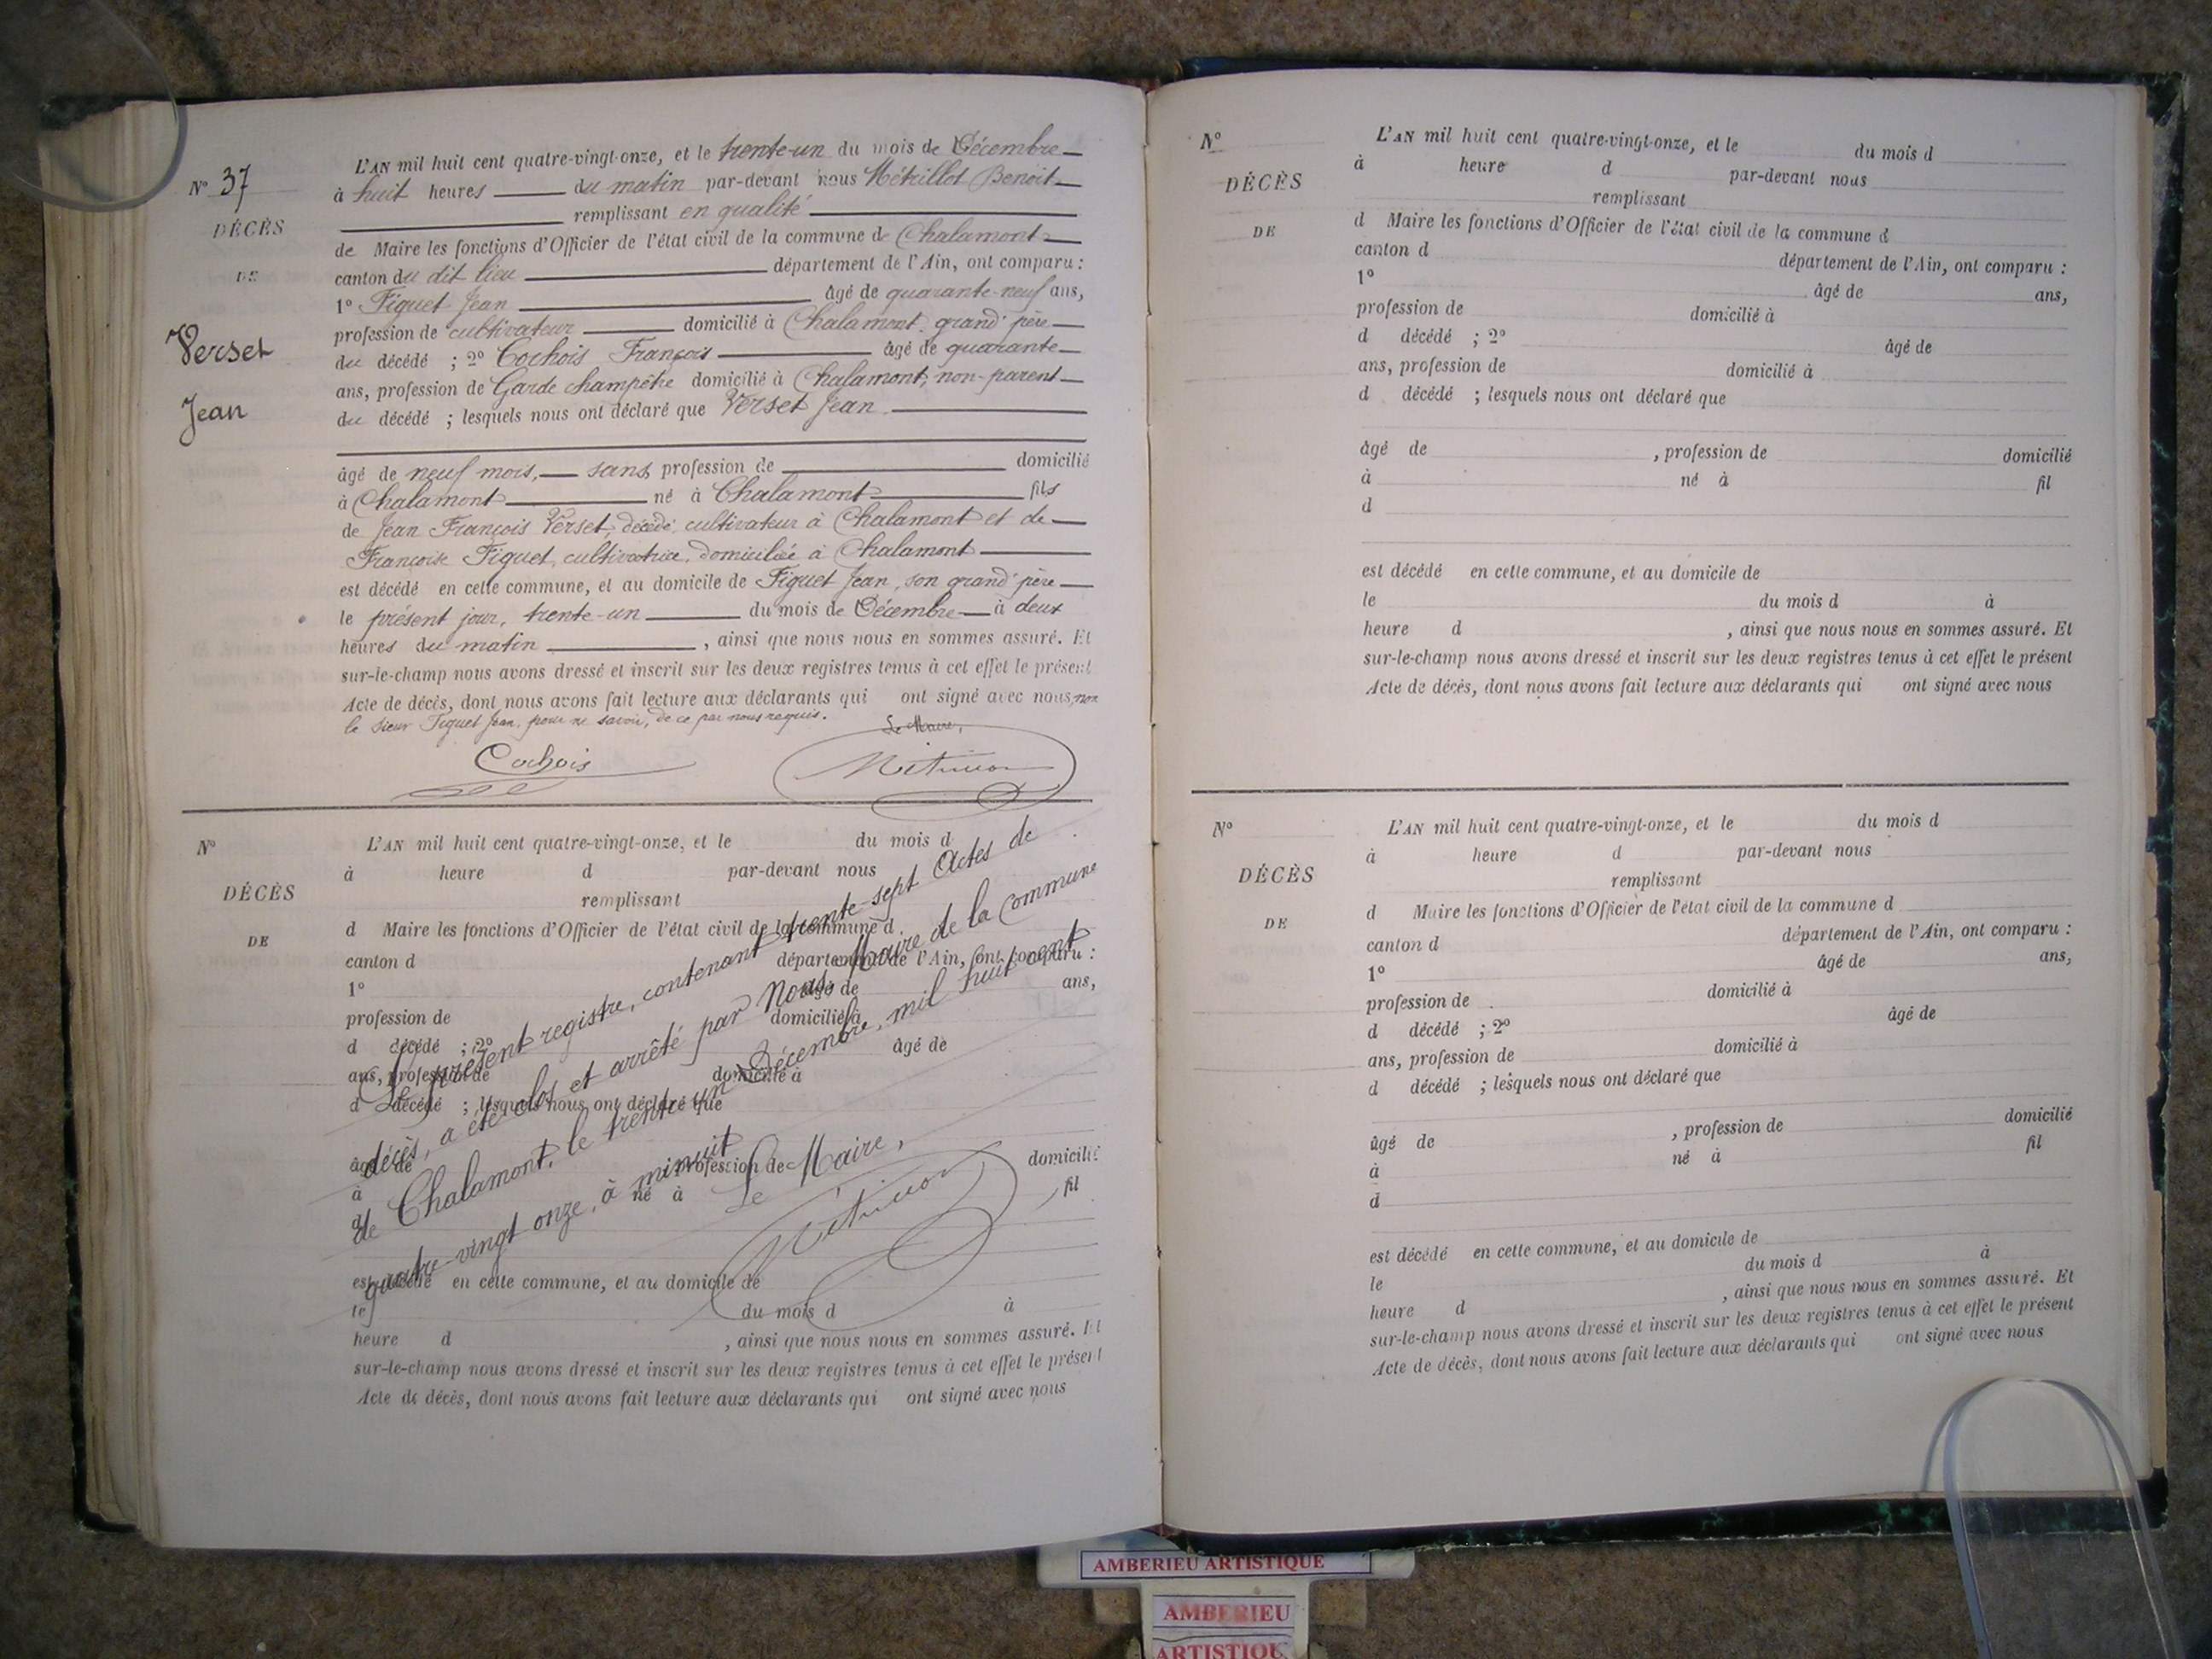 N° 37
DÉCÈS
DE
Verset
Jean
L'AN mil huit cent quatre-vingt-onze, et le trente-un du mois de Décembre
à huit heures du matin par-devant nous Métrillot Benoit
remplissant en qualité
de Maire les fonctions d'Officier de l'état civil de la commune de Chalamont
canton du dit lieu département de l'Ain, ont comparu :
1° Figuet Jean âgé de quarante-neuf ans,
profession de cultivateur domicilié à Chalamont, grand'père
du décédé ; 2° Cochois François âgé de quarante
ans, profession de Garde champêtre domicilié à Chalamont, non-parent
du décédé ; lesquels nous ont déclaré que Verset Jean
âgé de neuf mois, sans profession de domicilié
à Chalamont né à Chalamont fils
de Jean François Verset, décédé, cultivateur à Chalamont et de
Françoise Figuet, cultivatrice, domiciliée à Chalamont
est décédé en cette commune, et au domicile de Figuet Jean, son grand'père
le présent jour, trente-un du mois de Décembre à deux
heures du matin , ainsi que nous nous en sommes assuré. Et
sur-le-champ nous avons dressé et inscrit sur les deux registres tenus à cet effet le présent
Acte de décès, dont nous avons fait lecture aux déclarants qui ont signé avec nous, non
le sieur Figuet Jean, pour ne savoir, de ce par nous requis.
Le Maire,
Cochois
N°
DÉCÈS
DE
L'AN mil huit cent quatre-vingt-onze, et le du mois d
à heure d par-devant nous
remplissant
d Maire les fonctions d'Officier de l'état civil de la commune d
canton d département de l'Ain, ont comparu :
1° âgé de ans,
profession de domicilié à
d décédé ; 2° âgé de
ans, profession de domicilié à
d décédé ; lesquels nous ont déclaré que
âgé de , profession de domicilié
à né à fil
d
est décédé en cette commune, et au domicile de
le du mois d à
heure d , ainsi que nous nous en sommes assuré. Et
sur-le-champ nous avons dressé et inscrit sur les deux registres tenus à cet effet le présent
Acte de décès, dont nous avons fait lecture aux déclarants qui ont signé avec nous
Le présent registre, contenant trente-sept Actes de
décès, a été clos et arrêté par Nous, Maire de la Commune
de Chalamont, le trente-un Décembre, mil huit cent
quatre-vingt onze, à minuit
Le Maire,
N°
DÉCÈS
DE
L'AN mil huit cent quatre-vingt-onze, et le du mois d
à heure d par-devant nous
remplissant
d Maire les fonctions d'Officier de l'état civil de la commune d
canton d département de l'Ain, ont comparu :
1° âgé de ans,
profession de domicilié à
d décédé ; 2° âgé de
ans, profession de domicilié à
d décédé ; lesquels nous ont déclaré que
âgé de , profession de domicilié
à né à fil
d
est décédé en cette commune, et au domicile de
le du mois d à
heure d , ainsi que nous nous en sommes assuré. Et
sur-le-champ nous avons dressé et inscrit sur les deux registres tenus à cet effet le présent
Acte de décès, dont nous avons fait lecture aux déclarants qui ont signé avec nous
N°
DÉCÈS
DE
L'AN mil huit cent quatre-vingt-onze, et le du mois d
à heure d par-devant nous
remplissant
d Maire les fonctions d'Officier de l'état civil de la commune d
canton d département de l'Ain, ont comparu :
1° âgé de ans,
profession de domicilié à
d décédé ; 2° âgé de
ans, profession de domicilié à
d décédé ; lesquels nous ont déclaré que
âgé de , profession de domicilié
à né à fil
d
est décédé en cette commune, et au domicile de
le du mois d à
heure d , ainsi que nous nous en sommes assuré. Et
sur-le-champ nous avons dressé et inscrit sur les deux registres tenus à cet effet le présent
Acte de décès, dont nous avons fait lecture aux déclarants qui ont signé avec nous
AMBERIEU ARTISTIQUE
AMBERIEU
ARTISTIQU